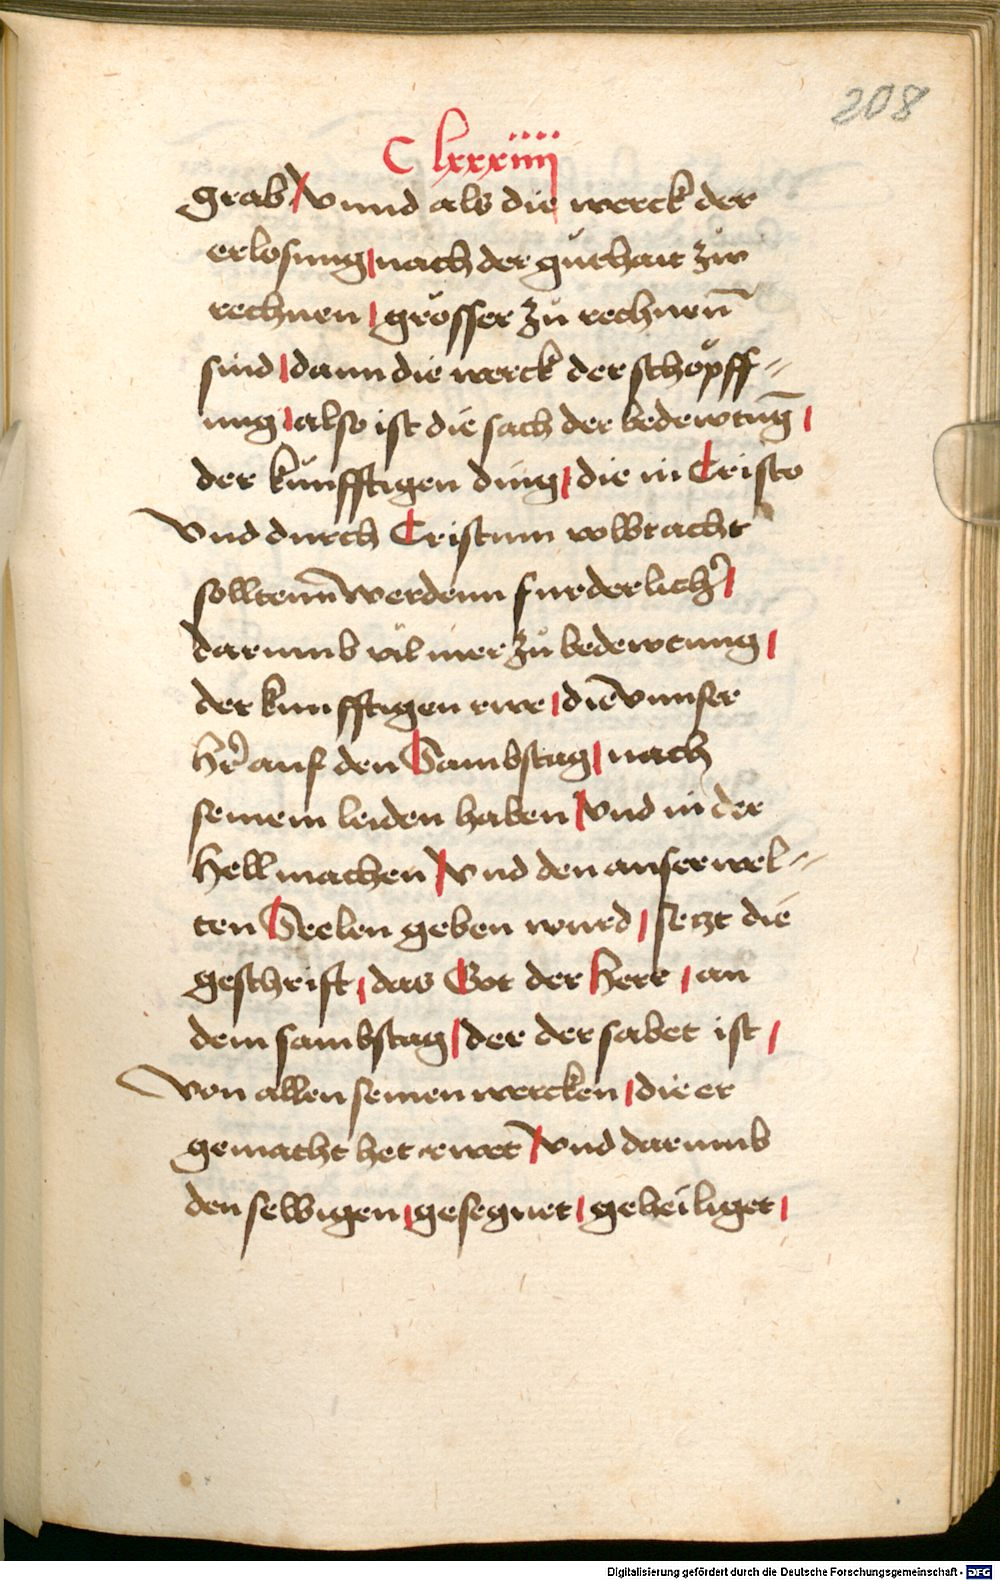 208
C lxxxiiii
grab / vnnd als die werck der
erlosung / nach der gůthait zw
rechnen / grösser zů rechnen̄
sind / dann die werck der schöpff=
ung / also ist die sach der bedewtūg /
der künfftigen ding / die in Cristo
vnd durch Cristum volbracht
solltenn̄ werdenn furderlich' /
darumb vil mer zů bedewtung /
der kunfftigen rwe / die vnnser
h'r auf den Sambstag / nach
seinem leiden haben / vnd in der
Hell machen / vnd den auserwel=
ten Seelen geben wurd / setzt die
geschrift / das Got der Herr / an
dem sambstag / der der sabet ist /
von allen seinen wercken / die er
gemacht het rwet / vnd darumb
den selbigen / gesegnet / geheiliget /
Digitalisierung gefördert durch die Deutsche Forschungsgemeinschaft - DFG